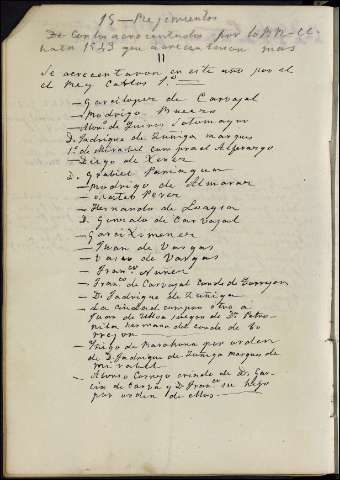 15 — Regimientos
De los acrecentados por los RR. CC.
hasta 1543 que acrecentaron mas
11
Se acrecentaron en este año por el
el Rey Carlos 1º
— Garcilopez de Carvajal
— Rodrigo
— Alvº. de Sotomayor
D. Fadrique de Zuñiga marques
1º de Mirabel compro el Alferazgo
— Diego de Xerez
D. Gabriel Paniagua
— Rodrigo de Almaraz
— Perez
— Hernando de Loaysa
D. Gonzalo de Carvajal
— Garci Ximenez
— Juan de Vargas
— de Vargas
— Franco Nuñez
— Franco de Carvajal conde de Torrejon
— D. Fadrique de Zuñiga
— La ciudad compro otro a
Juan de Ulloa suegro de Dª Petro-
nila hermana del conde de To
rrejon
— Iñigo de Barahona por orden
de D. Fadrique de Zuñiga Marques de
Mirabel
— Alonso Cornejo criado de D. Gar-
cia de y D. Franco su hijo
por orden de ellos —